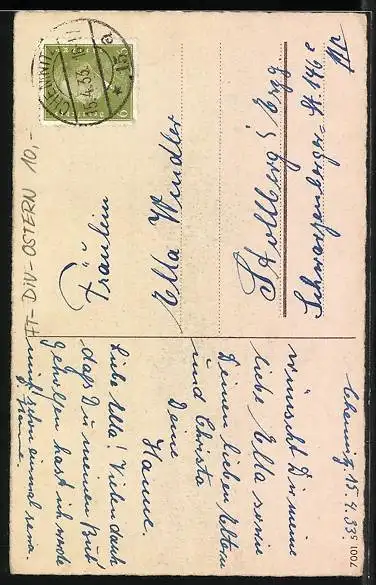 Chemnitz, 15.4.33.
wünscht Dir meine
liebe Ella sowie
Deinen lieben Eltern
und Christa
Deine
Hanne.
Liebe Ella! Vielen Dank
daß Du meinen Bub
geholfen hast ich werde
Hanne.
Fräulein
Ella Windler
Stollberg i/ Erzg
Schwarzenberger-St. 146 e
CHEMNITZ
15.4.33.
6
7001 5
LT-DIV-OSTERN 10,-